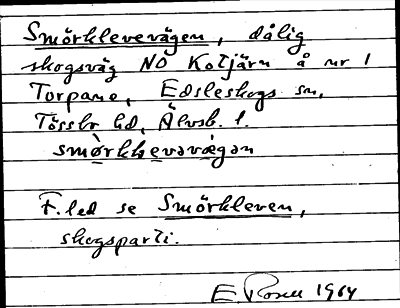 Smörklevevägen, dålig
skogsväg NO Kotjärn å nr 1
Torpane, Edsleskogs sn,
Tössbo hd, Älvsb. l.
smørkhevavægan
F.led se Smörkleven,
skogsparti.
E. Rosell 1964